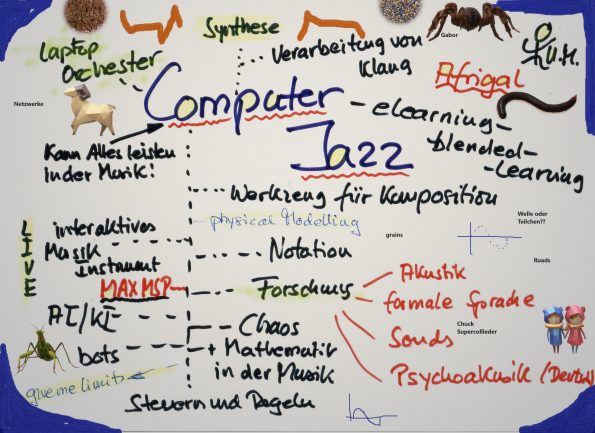 Gabor
Synthese
Laptop
Orchester
Verarbeitung von
Klang
Afrigal
Netzwerke
Computer
Jazz
- eLearning -
blended -
- Learning
Kann Alles leisten
in der Musik!
Werkzeug für Komposition
physical Modelling
Welle oder
Teilchen??
LIVE
interaktives
Musik
Instrument
MAX MSP
grains
Notation
Roads
Forschung
Akustik
formale Sprache
AI/KI
Chaos
Chuck
Supercollieder
Sonds
bots
+ Mathematik
in der Musik
Psychoakusik (Deutsch)
give me limits
Steuern und Regeln